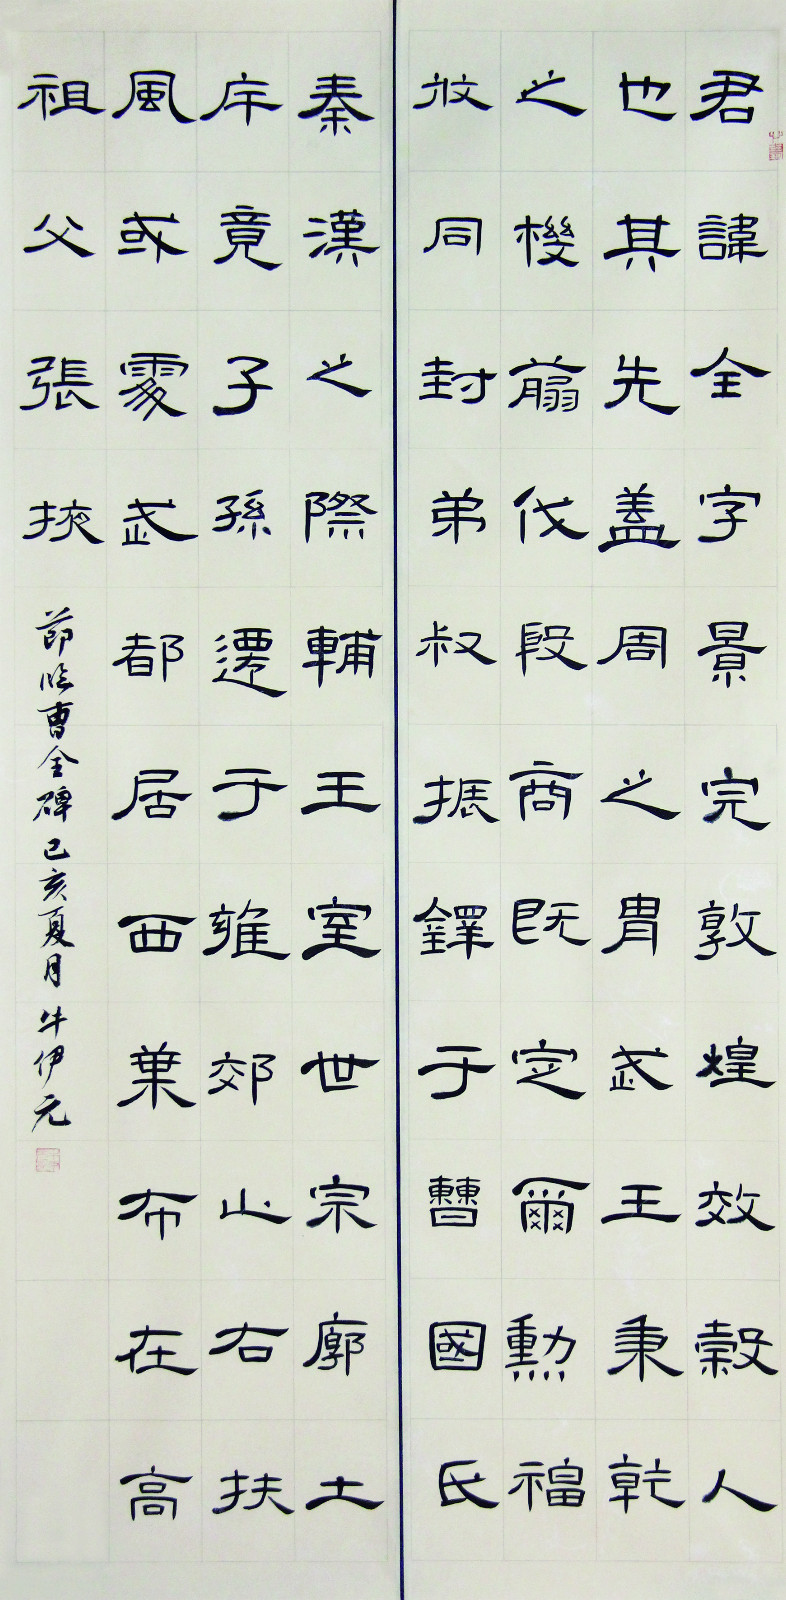 君諱全字景完敦煌效穀人
也其先盖周之胄武王秉乾
之機翦伐殷商既定爾勳福
攸同封弟叔振鐸于曹國氏
秦漢之際輔王室世宗廓土
斥竟子孫遷于雍郊止右扶
風或處武都居西葉布在高
祖父張掖
節臨曹全碑己亥夏月牛伊元